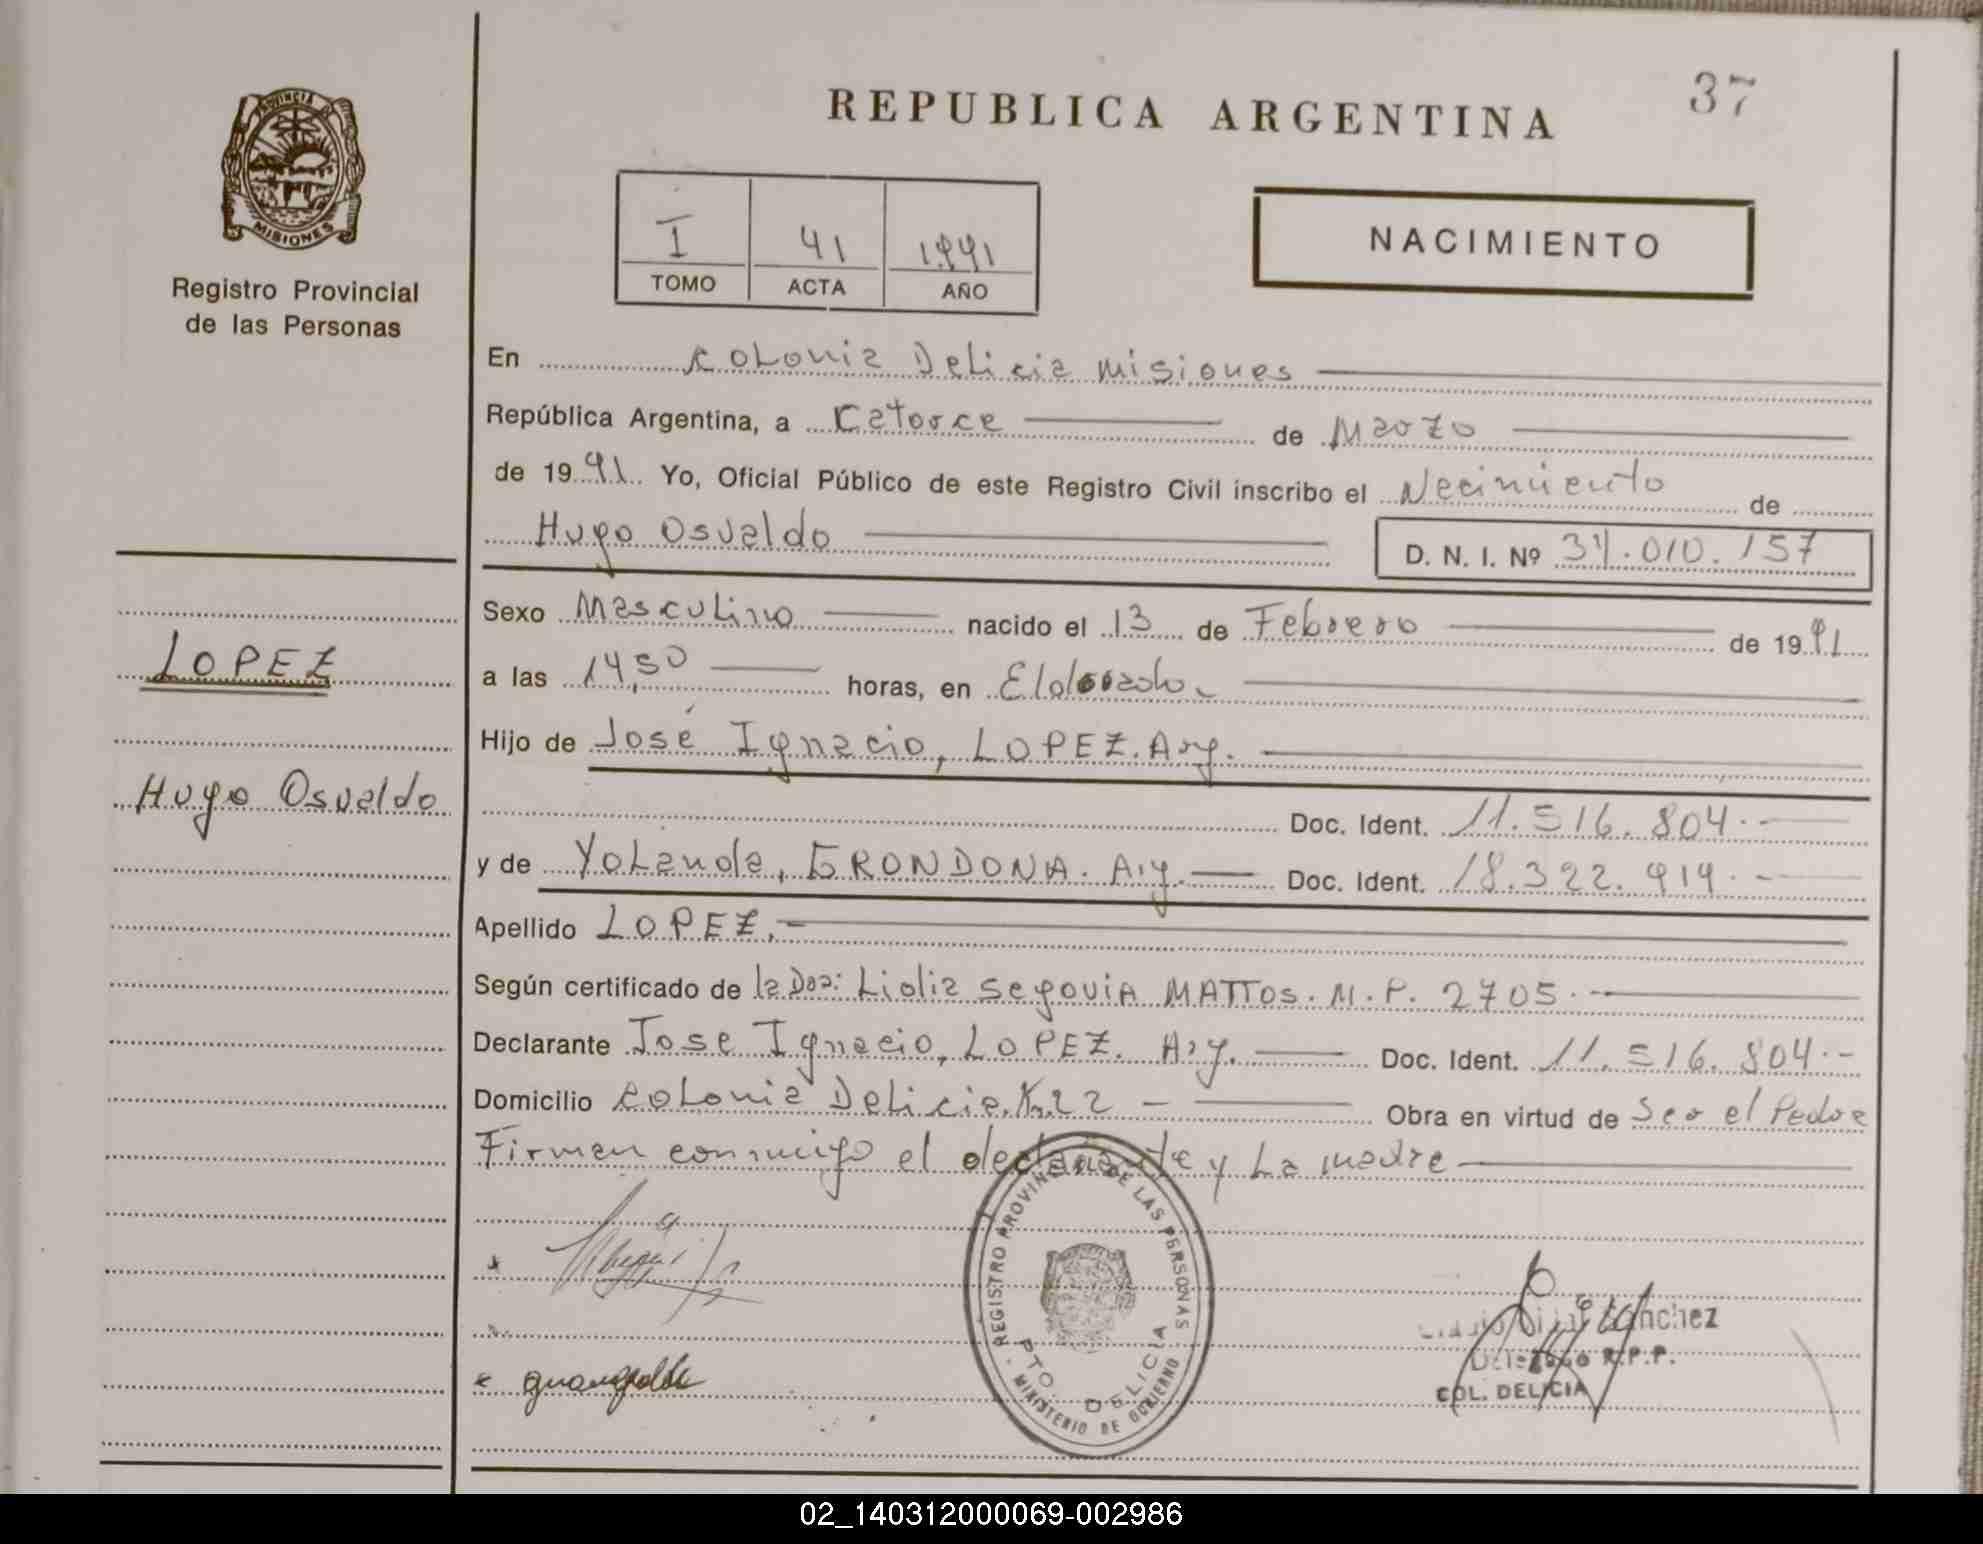 37
REPUBLICA ARGENTINA
PROVINCIA DE MISIONES
Registro Provincial
de las Personas
I 41 1991
TOMO ACTA AÑO
NACIMIENTO
En Colonia Delicia Misiones
República Argentina, a Catorce de Marzo
de 1991 Yo, Oficial Público de este Registro Civil inscribo el Nacimiento de
Hugo Osvaldo D. N. I. Nº 34.010.157
Sexo Masculino nacido el 13 de Febrero de 1991
LOPEZ
a las 14,50 horas, en Eldorado
Hijo de José Ignacio, LOPEZ. Arg.
Hugo Osvaldo
Doc. Ident. 11.516.804.-
y de Yolanda, GRONDONA. Arg. Doc. Ident. 18.322.919.-
Apellido LOPEZ.-
Según certificado de la Dra: Lidia Segovia MATTOS. M.P. 2705.-
Declarante Jose Ignacio, LOPEZ. Arg. Doc. Ident. 11.516.804.-
Domicilio Colonia Delicia. Km 22 - Obra en virtud de Ser el Padre
Firman conmigo el declarante y La madre
REGISTRO PROVINCIAL DE LAS PERSONAS
PTO. DELICIA
MINISTERIO DE GOBIERNO
Sanchez
Delegado R.P.P.
COL. DELICIA
02_140312000069-002986